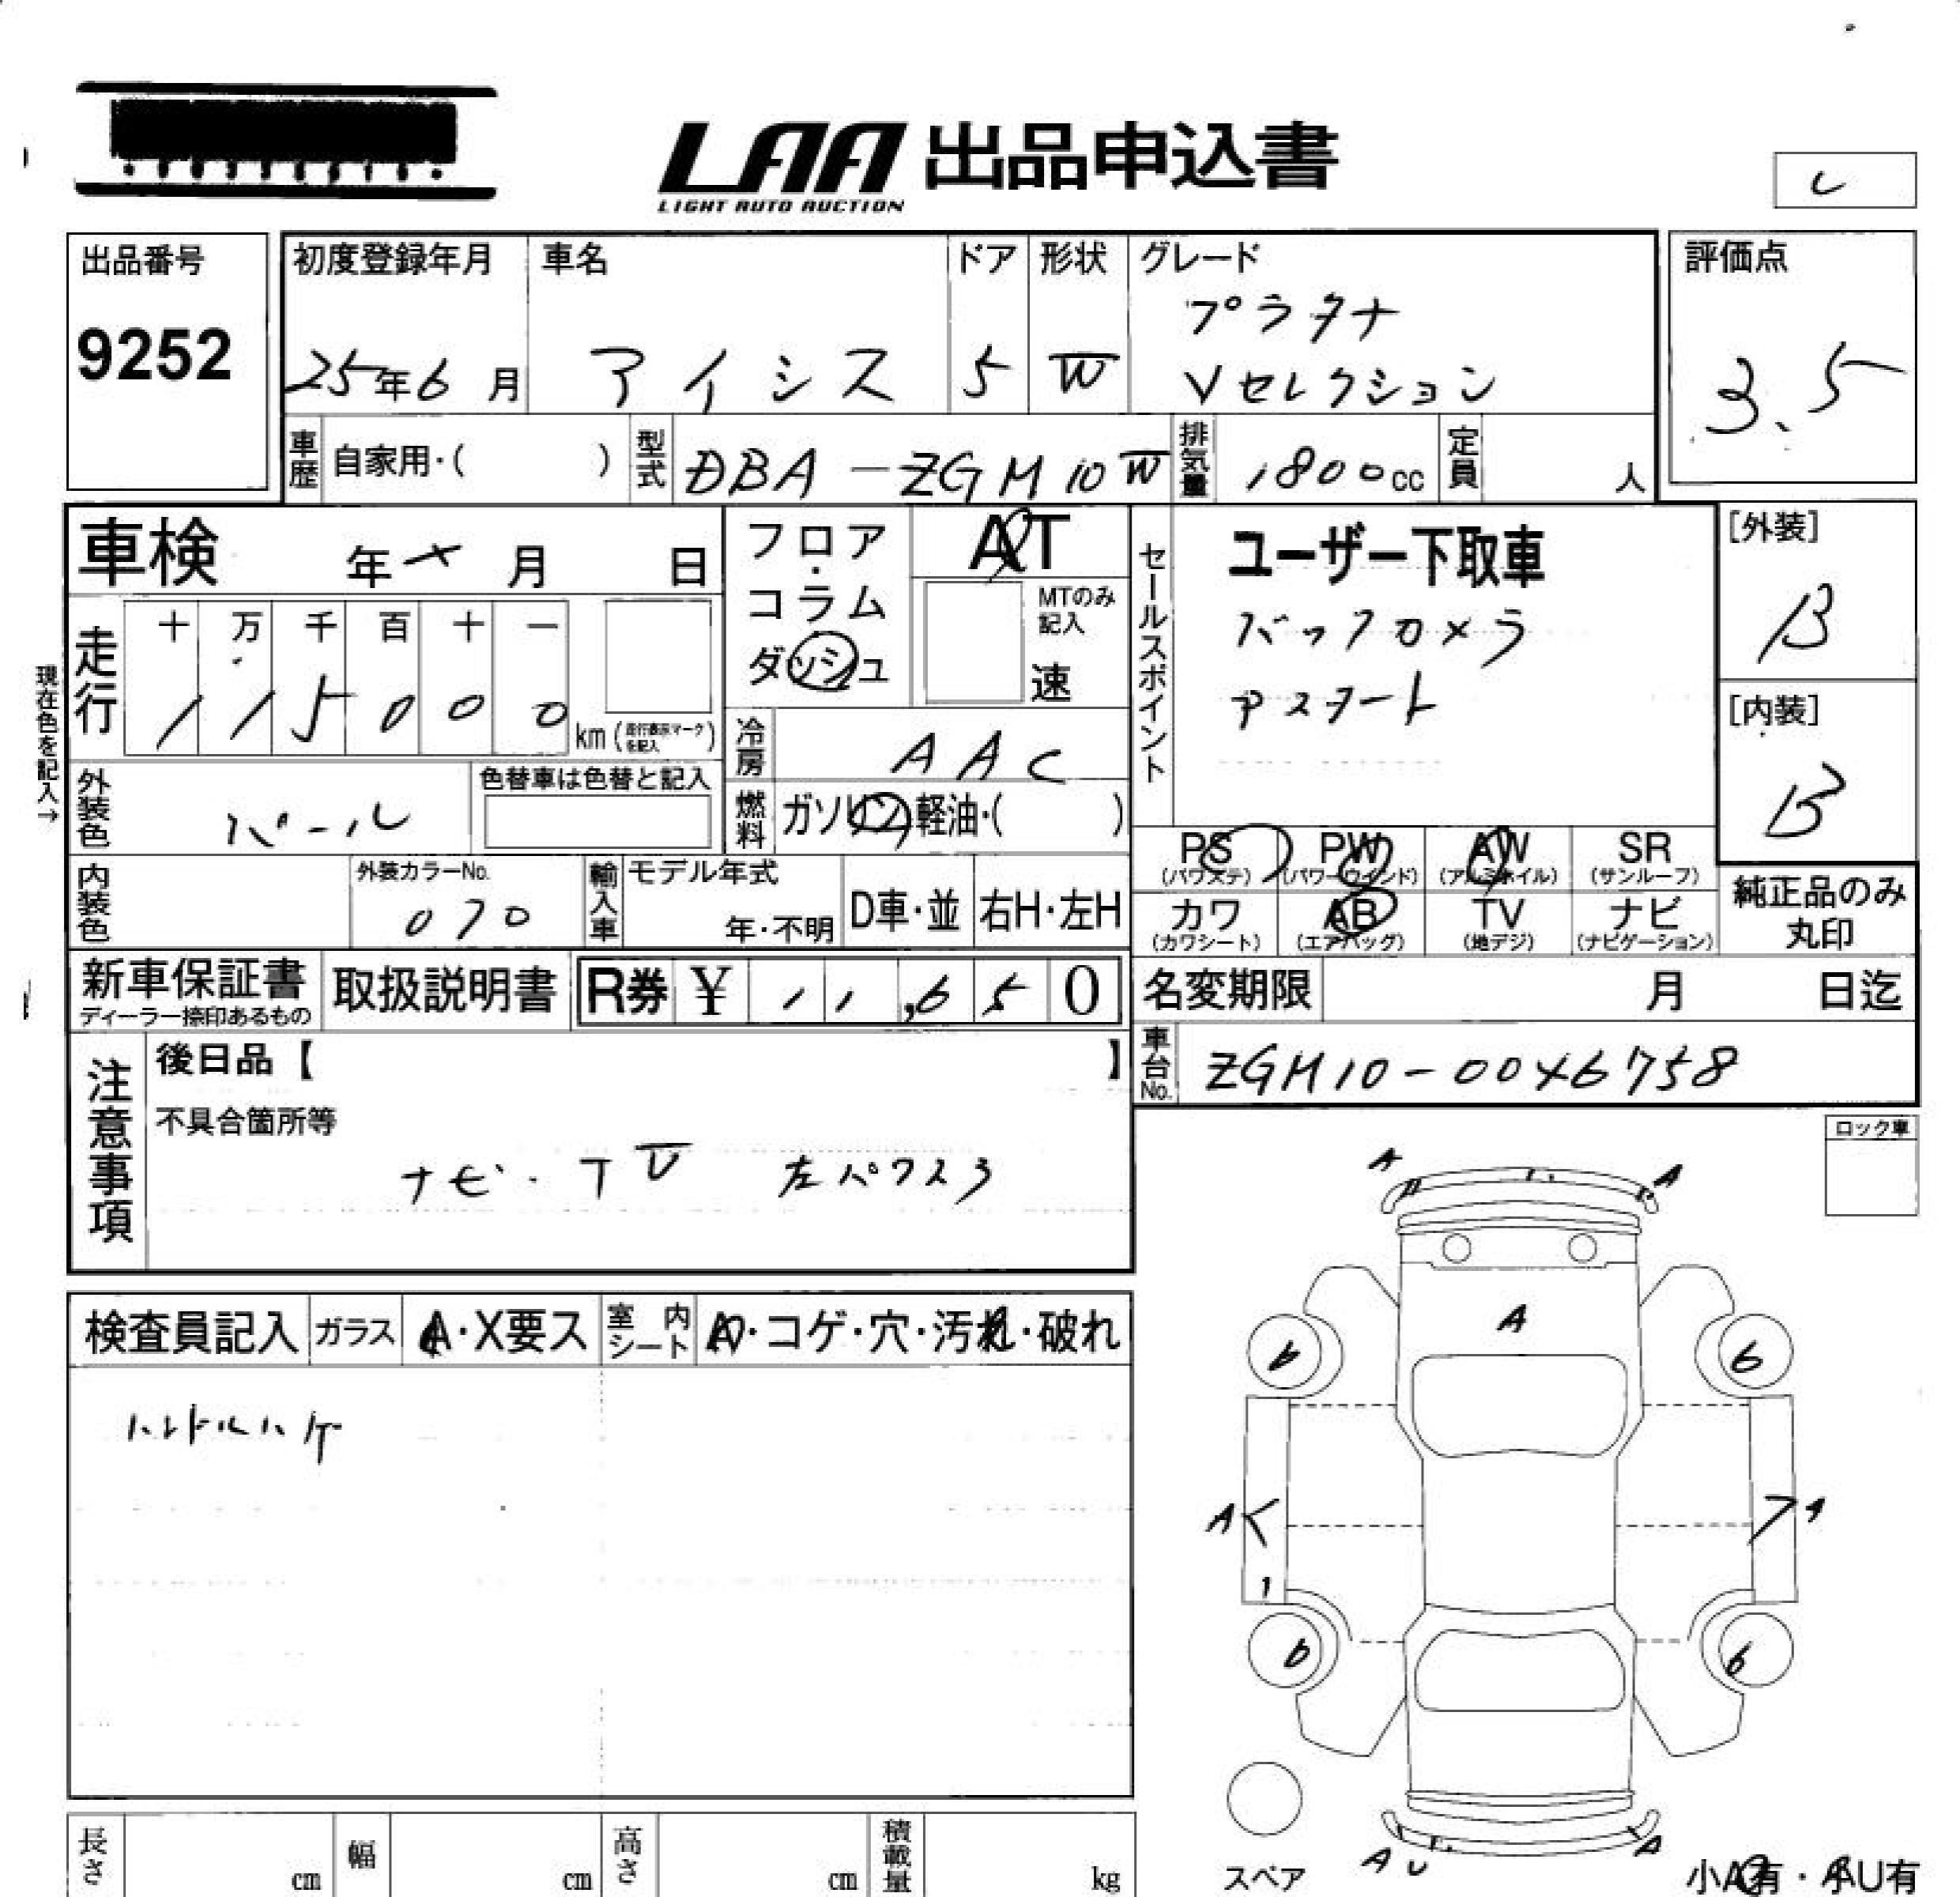 LAA 出品申込書
LIGHT AUTO AUCTION
出品番号
9252
初度登録年月
25年6月
車名
アイシス
ドア
5
形状
W
グレード
プラタナ
Vセレクション
評価点
3.5
車歴
自家用・( )
型式
DBA-ZGM10W
排気量
1800cc
定員
人
車検 年 × 月 日
現在色を記入→
走行
十 万 千 百 十 一
1 1 5 0 0 0
km (走行表示マークを記入)
フロア・コラム
ダッシュ
AT
MTのみ
記入
速
冷房
AAC
燃料
ガソリン・軽油・( )
セールスポイント
ユーザー下取車
バックカメラ
Pスタート
[外装]
B
[内装]
B
外装色
パール
色替車は色替と記入
内装色
外装カラーNo.
070
輸入車
モデル年式
年・不明
D車・並
右H・左H
PS
(パワステ)
PW
(パワーウインド)
AW
(アルミホイル)
SR
(サンルーフ)
カワ
(カワシート)
AB
(エアバッグ)
TV
(地デジ)
ナビ
(ナビゲーション)
純正品のみ
丸印
新車保証書
ディーラー捺印あるもの
取扱説明書
R券 ¥ 11,650
名変期限 月 日迄
車台No.
ZGM10-0046758
注意事項
後日品【 】
不具合箇所等
ナビ・TV 左パワスラ
ロック車
検査員記入
ガラス
A・X要ス
室内シート
A・コゲ・穴・汚れ・破れ
ハンドルハゲ
A A
A
6 6
A A
1
6 6
A U A
スペア
小A有・小U有
長さ cm
幅 cm
高さ cm
積載量 kg